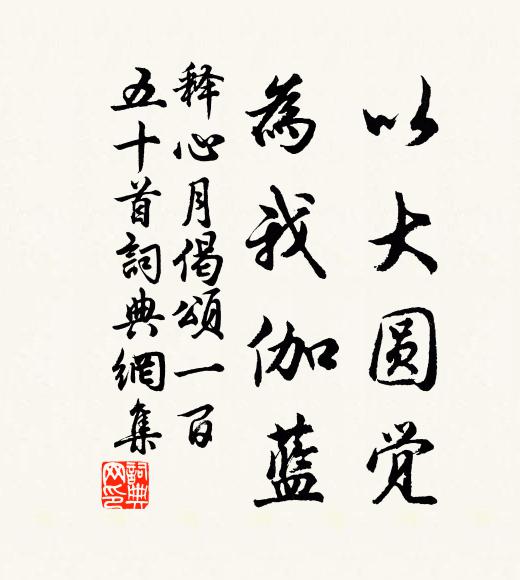 以大圆觉
為我伽藍
释心月偈頌一百
五十首詞典網集
詞典
网印